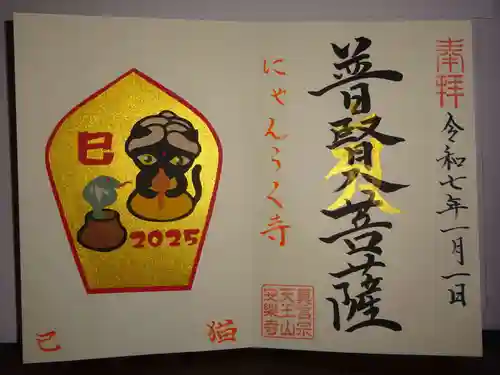 奉拝
令和七年一月一日
普賢菩薩
にゃんらく寺
真言宗
天王山
安楽寺
巳
2025
己
猫